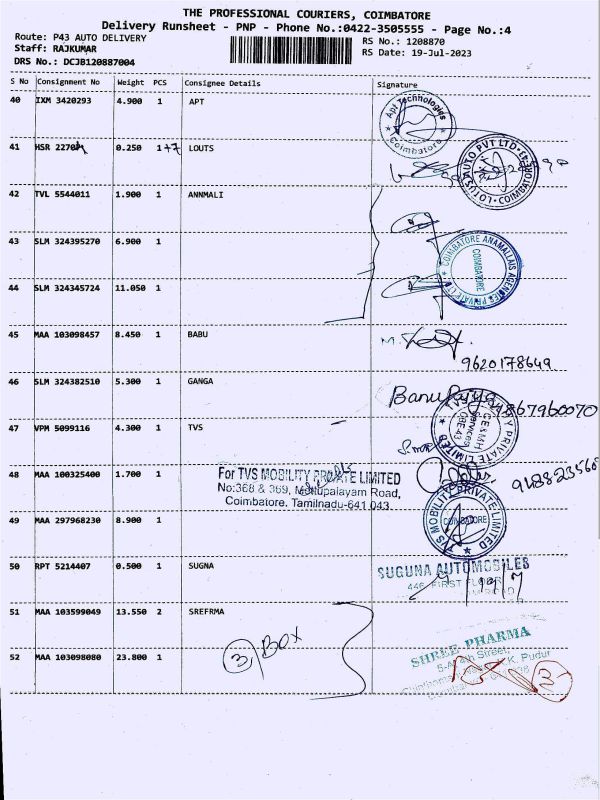 THE PROFESSIONAL COURIERS, COIMBATORE
Delivery Runsheet - PNP - Phone No.:0422-3505555 - Page No.:4
Route: P43 AUTO DELIVERY
RS No.: 1208870
Staff: RAJKUMAR
RS Date: 19-Jul-2023
DRS No.: DCJB120887004
S No Consignment No Weight PCS Consignee Details Signature
40 IXM 3420293 4.900 1 APT
Apt Technologies
★ Coimbatore ★
41 HSR 2270 0.250 1+7 LOUTS
LOTUS AUTO PVT LTD. COIMBATORE
42 TVL 5544011 1.900 1 ANNMALI
43 SLM 324395270 6.900 1
COIMBATORE ANAMALLAIS AGENCIES PRIVATE LTD ★
COIMBATORE
44 SLM 324345724 11.050 1
45 MAA 103098457 8.450 1 BABU
9620178649
46 SLM 324382510 5.300 1 GANGA
Banu Priya
94867960070
47 VPM 5099116 4.300 1 TVS
48 MAA 100325400 1.700 1
For TVS MOBILITY PRIVATE LIMITED
No:368 & 369, Mettupalayam Road,
Coimbatore. Tamilnadu-641 043.
49 MAA 297968230 8.900 1
TVS MOBILITY PRIVATE LIMITED ★
COIMBATORE
50 RPT 5214407 0.500 1 SUGNA
SUGUNA AUTOMOBILES
446, FIRST FLOOR
19/7
51 MAA 103599049 13.550 2 SREFRMA
3 BOX
52 MAA 103098080 23.800 1
SHREE PHARMA
Street,
K.K. Pudur
3